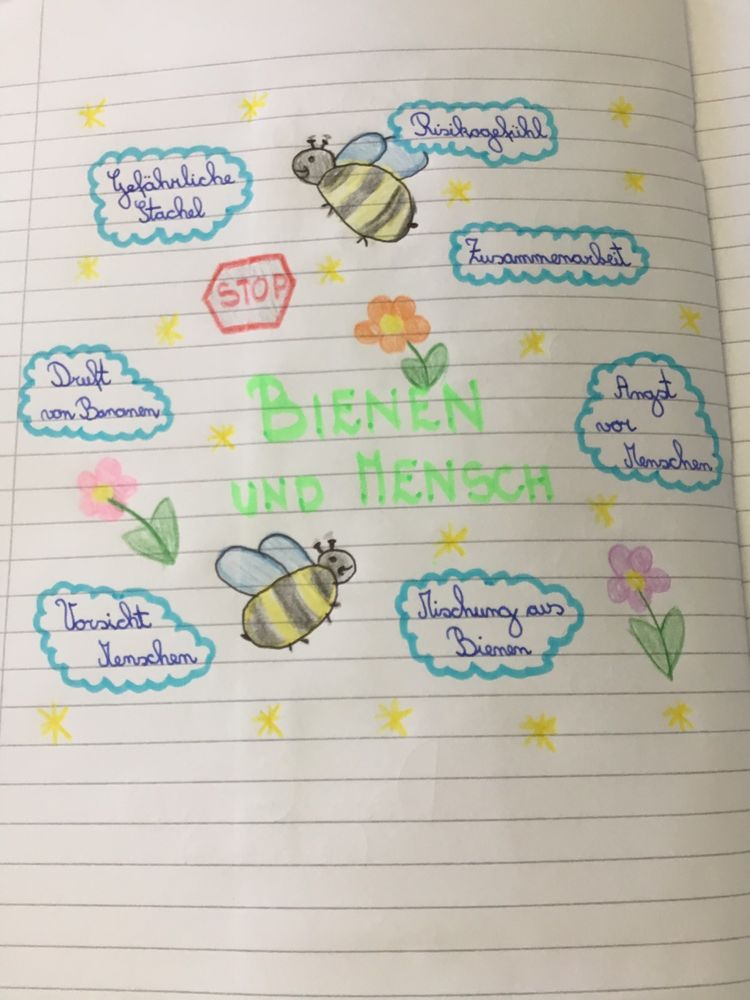 Risikogefühl
Gefährliche
Stachel
Zusammenarbeit
STOP
Duft
von Bananen
BIENEN
UND MENSCH
Angst
vor
Menschen
Vorsicht
Menschen
Mischung aus
Bienen